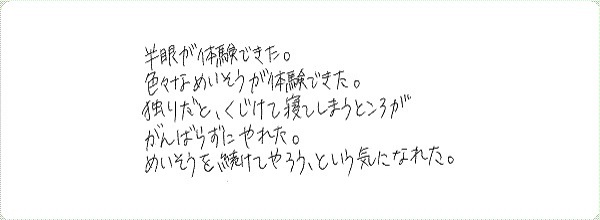 半眼が体験できた。
色々なめいそうが体験できた。
独りだと、くじけて寝てしまうところが
がんばらずにやれた。
めいそうを続けてやろう、という気になれた。